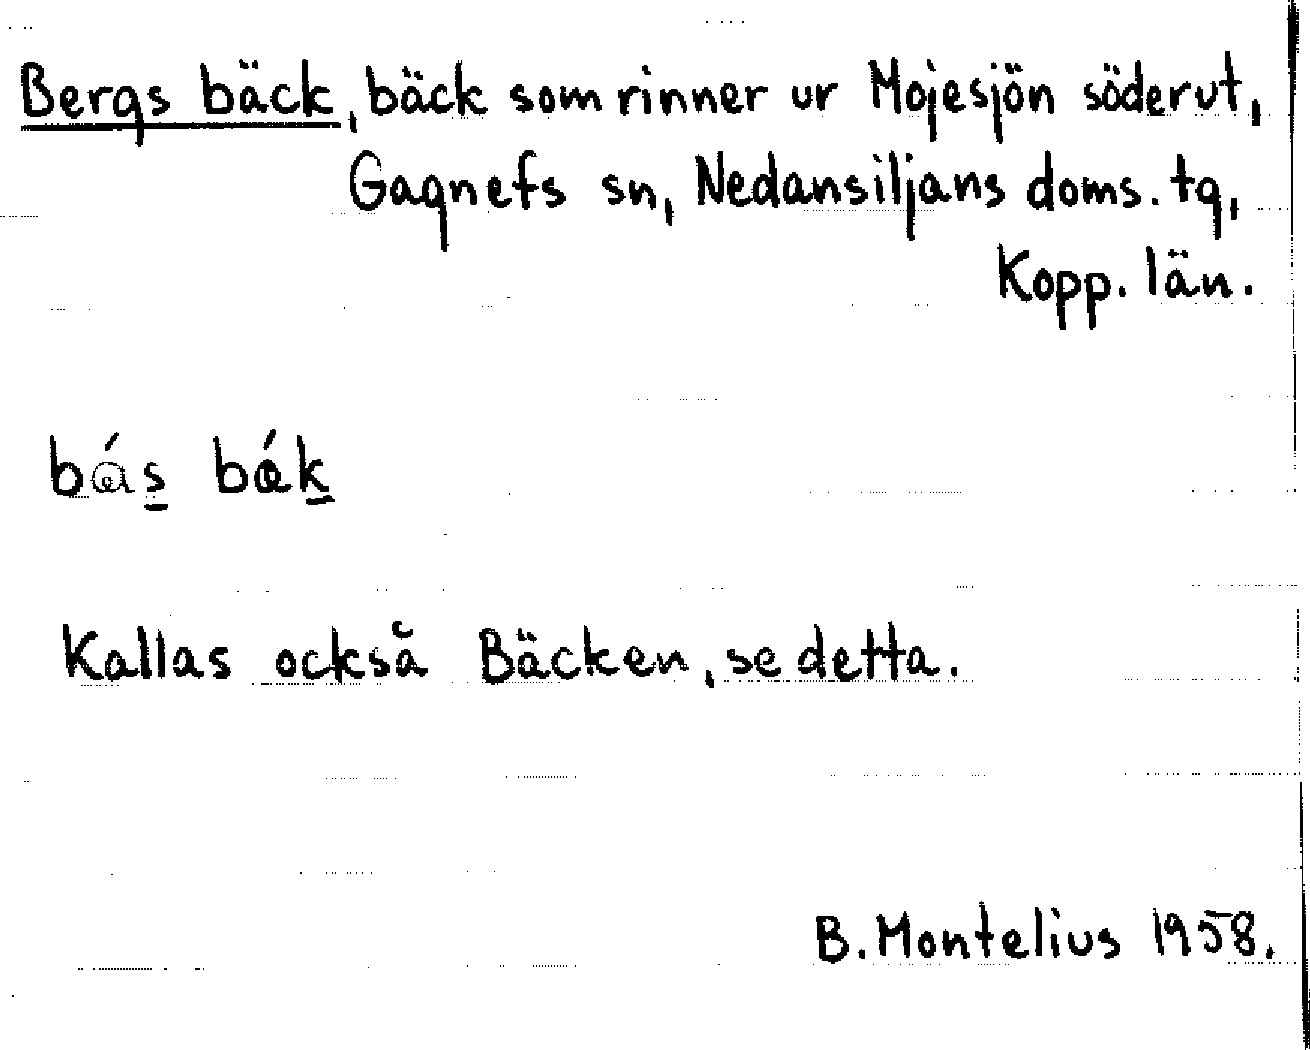 Bergs bäck, bäck som rinner ur Mojesjön söderut,
Gagnefs sn, Nedansiljans doms. tg,
Kopp. län.
Kallas också Bäcken, se detta.
B. Montelius 1958.